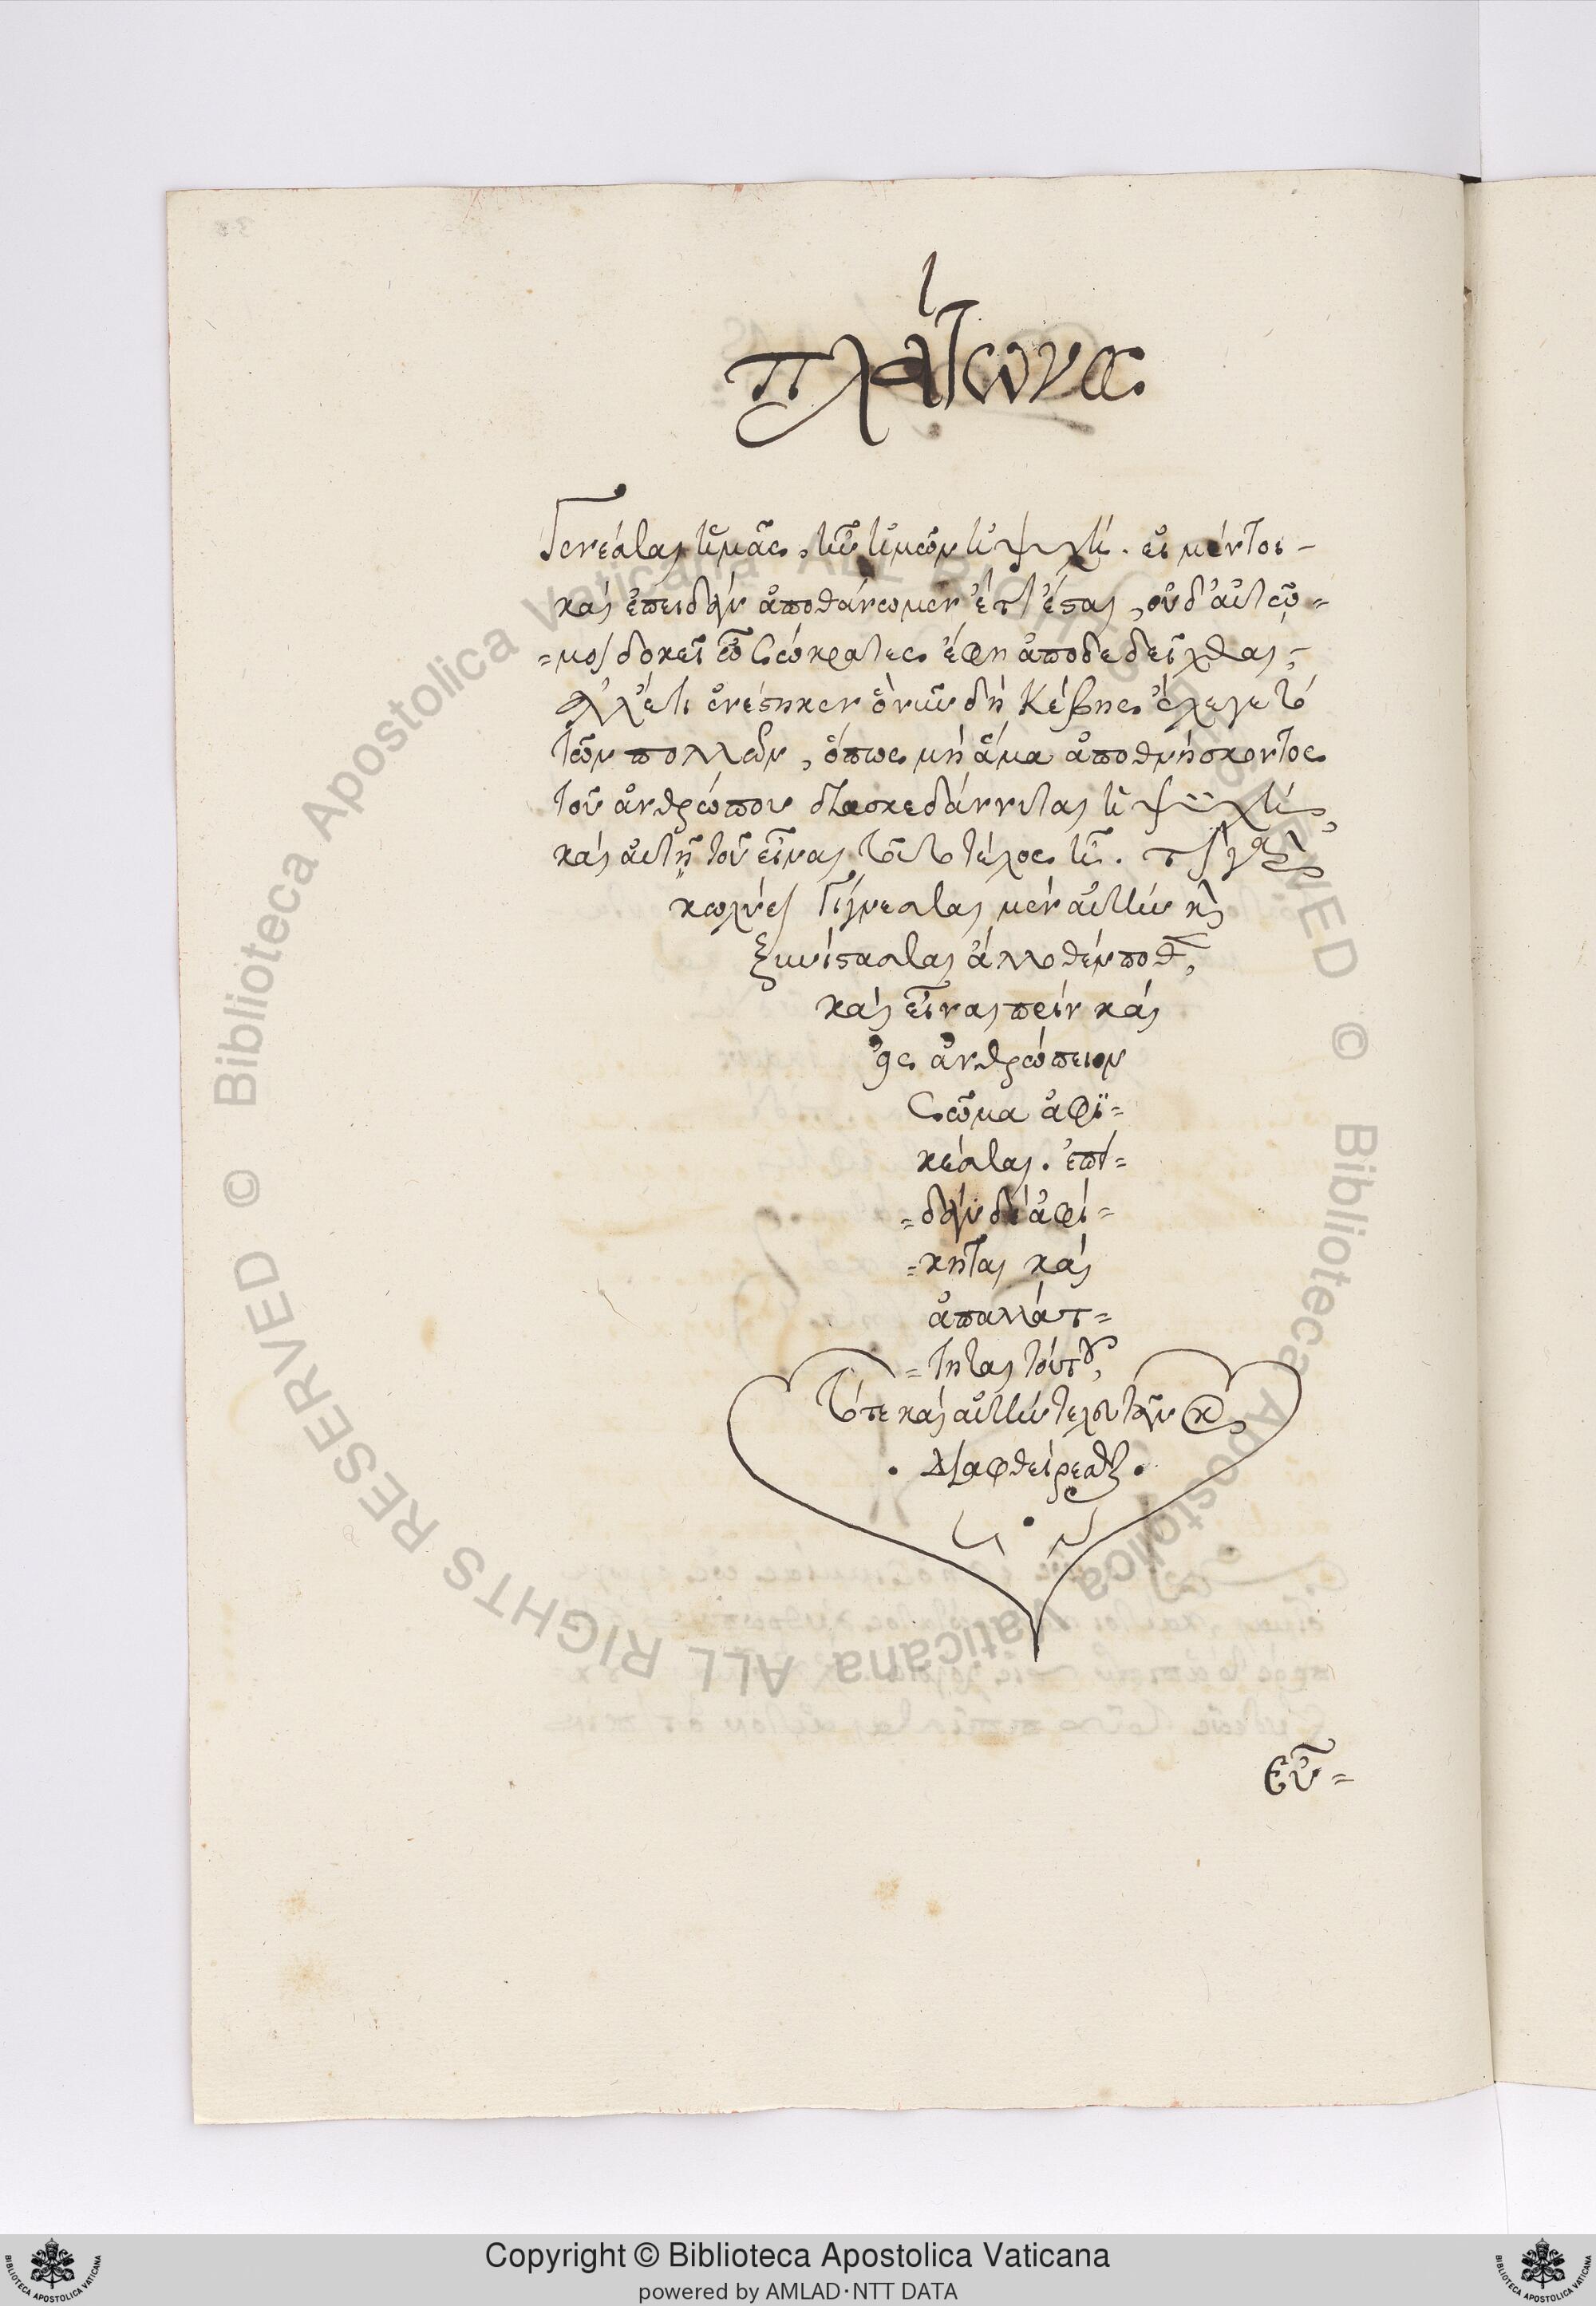 πλάτωνος
Γενέσθαι ἡμᾶς, ἦν ἡμῶν ἡ ψυχή. εἰ μέντοι
καὶ ἐπειδὰν ἀποθάνωμεν ἔτι ἔσται, οὐδ' αὐτῷ
μοι δοκεῖ ὦ Σώκρατες ἔφη ἀποδεδεῖχθαι,
ἀλλ' ἔτι ἐνέστηκεν ὃ νῦν δὴ Κέβης ἔλεγε τὸ
τῶν πολλῶν, ὅπως μὴ ἅμα ἀποθνήσκοντος
τοῦ ἀνθρώπου διασκεδάννυται ἡ ψυχή,
καὶ αὐτῇ τοῦ εἶναι τοῦτο τέλος ᾖ. τί γὰρ
κωλύει γίγνεσθαι μὲν αὐτὴν καὶ
ξυνίστασθαι ἄλλοθέν ποθεν,
καὶ εἶναι πρὶν καὶ
εἰς ἀνθρώπειον
Σῶμα ἀφϊ=
κέσθαι. ἐπει=
=δὰν δὲ ἀφί=
=κηται καὶ
ἀπαλλάτ=
=τηται τούτου,
τότε καὶ αὐτὴν τελευτᾶν καὶ
. Διαφθείρεσθαι.
εὖ=
Copyright © Biblioteca Apostolica Vaticana
powered by AMLAD·NTT DATA